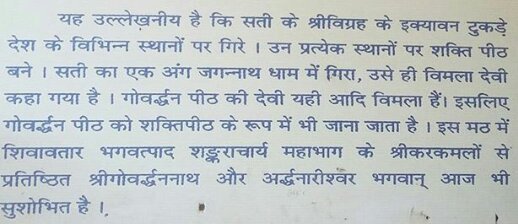 यह उल्लेखनीय है कि सती के श्रीविग्रह के इक्यावन टुकड़े
देश के विभिन्न स्थानों पर गिरे । उन प्रत्येक स्थानों पर शक्ति पीठ
बने । सती का एक अंग जगन्नाथ धाम में गिरा, उसे ही विमला देवी
कहा गया है । गोवर्द्धन पीठ की देवी यही आदि विमला हैं। इसलिए
गोवर्द्धन पीठ को शक्तिपीठ के रूप में भी जाना जाता है । इस मठ में
शिवावतार भगवत्पाद शङ्कराचार्य महाभाग के श्रीकरकमलों से
प्रतिष्ठित श्रीगोवर्द्धननाथ और अर्द्धनारीश्वर भगवान् आज भी
सुशोभित है ।